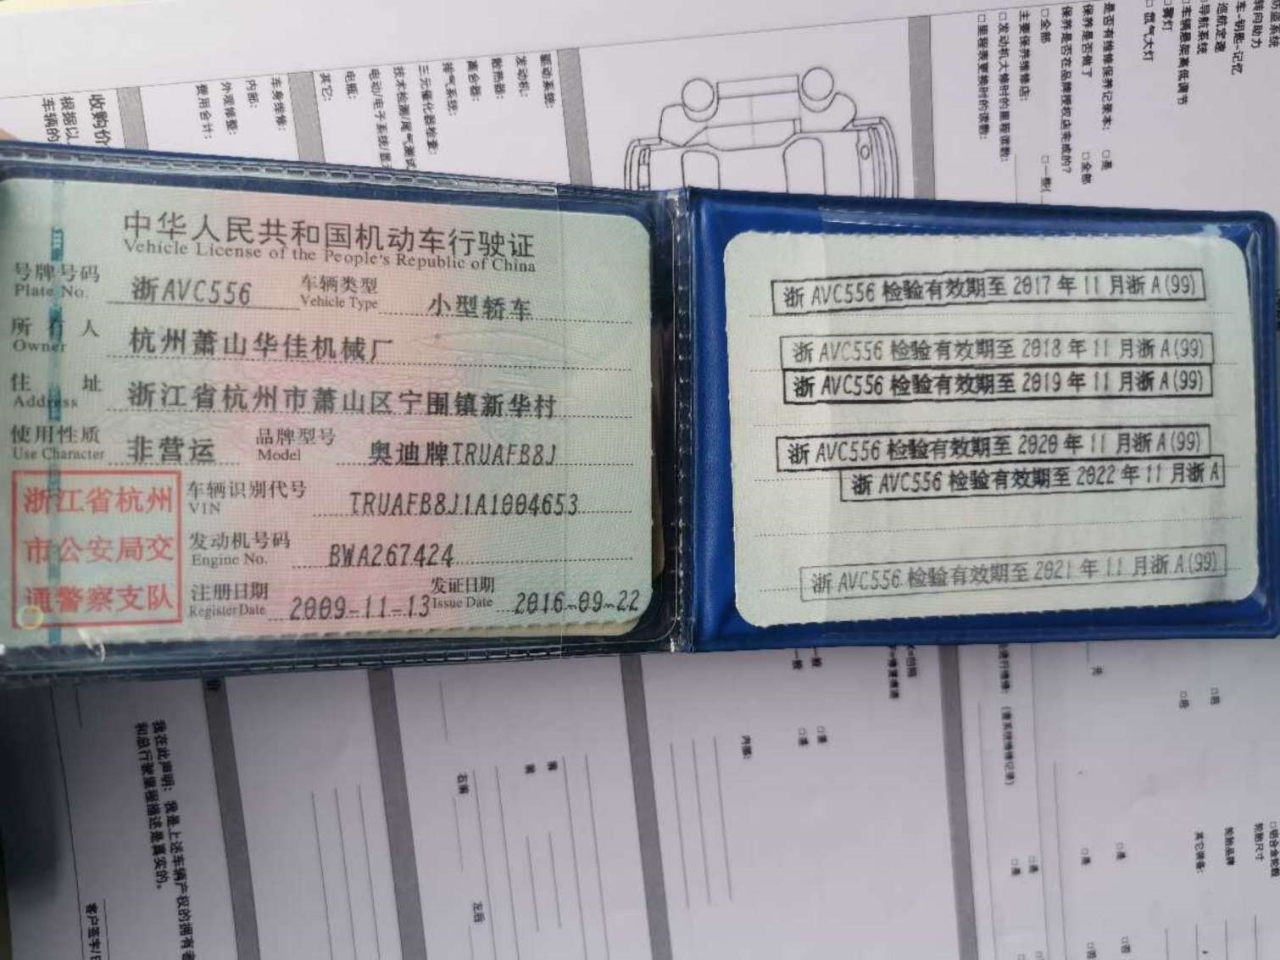 中华人民共和国机动车行驶证
Vehicle License of the People's Republic of China
号牌号码 浙AVC556 车辆类型 小型轿车
Plate No. Vehicle Type
所有人 杭州萧山华佳机械厂
Owner
住址 浙江省杭州市萧山区宁围镇新华村
Address
使用性质 非营运 品牌型号 奥迪牌TRUAFB8J
Use Character Model
浙江省杭州
市公安局交
通警察支队
车辆识别代号 TRUAFB8J1A1004653
VIN
发动机号码 BWA267424
Engine No.
注册日期 2009-11-13 发证日期 2016-09-22
Register Date Issue Date
浙AVC556 检验有效期至 2017 年 11 月浙 A(99)
浙AVC556 检验有效期至 2018 年 11 月浙 A(99)
浙AVC556 检验有效期至 2019 年 11 月浙 A(99)
浙AVC556 检验有效期至 2020 年 11 月浙 A(99)
浙AVC556 检验有效期至 2022 年 11 月浙 A
浙AVC556 检验有效期至 2021 年 11 月浙 A(99)
驱动系统:
发动机:
散热器:
离合器:
排气系统:
三元催化器检查:
电瓶:
其它:
车身维修:
内部:
外观修整:
费用合计:
收购价
根据以
车辆的
导航系统
车辆悬架高低调节
雾灯
氙气大灯
是否有维修保养记录本: □是
保养是否做了 □全部
保养是否在品牌授权店完成的?
□全部
主要保养维修店:
□发动机大修时的里程读数:
□里程表更换时的读数:
我在此声明: 我是上述车辆产权的拥有者
和总行驶里程描述是真实的。
右前
左后
内部:
其它装备:
轮胎品牌
轮胎尺寸